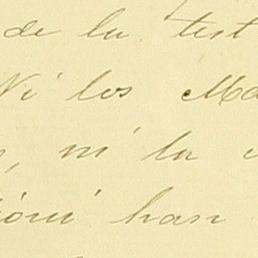 de la test
Ni los Ma
, ni la
ioni han